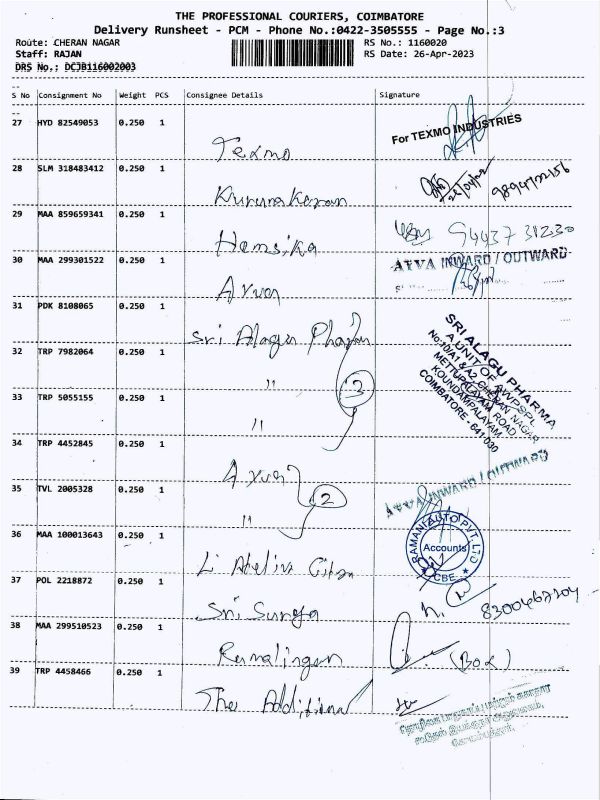 THE PROFESSIONAL COURIERS, COIMBATORE
Delivery Runsheet - PCM - Phone No.:0422-3505555 - Page No.:3
Route: CHERAN NAGAR
RS No.: 1160020
Staff: RAJAN
RS Date: 26-Apr-2023
DRS No.: DCJB116002003
S No Consignment No Weight PCS Consignee Details Signature
27 HYD 82549053 0.250 1 Texmo
For TEXMO INDUSTRIES
28 SLM 318483412 0.250 1
9894722156
29 MAA 859659341 0.250 1 Hemsika
94437 31230
30 MAA 299301522 0.250 1
AYVA INWARD / OUTWARD
31 PDK 8108065 0.250 1 Sri Alagu Pharma
SRI ALAGU PHARMA
A UNIT OF AWPSPL
No:10/A1 & A2 CHERAN NAGAR,
METTUPALAYAM ROAD,
KOUNDAMPALAYAM,
COIMBATORE - 641 030
32 TRP 7982064 0.250 1 "
3
33 TRP 5055155 0.250 1 "
34 TRP 4452845 0.250 1
AYVA INWARD / OUTWARD
35 TVL 2005328 0.250 1 "
2
36 MAA 100013643 0.250 1
RAMANI AUTO PVT. LTD
Accounts
CBE
37 POL 2218872 0.250 1 Sri Surya
8300467204
38 MAA 299510523 0.250 1 Ramalingam
(Box)
39 TRP 4458466 0.250 1 The Additional